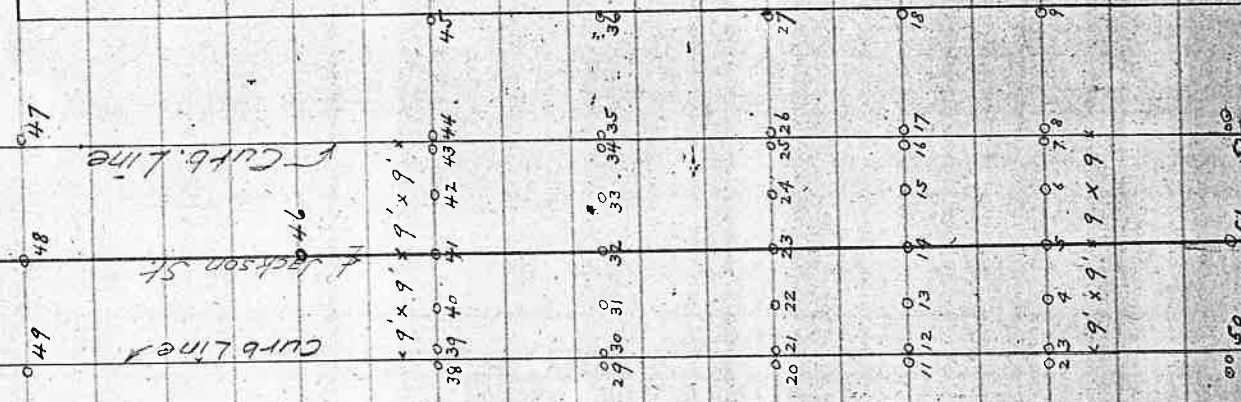 47
48
49
Curb. Line
℄ Jackson St.
Curb Line
46
x 9' x 9' x 9' x 9' x
45
44
43
42
41
40
39
38
36
35
34
33
32
31
30
29
27
26
25
24
23
22
21
20
18
17
16
15
14
13
12
11
9
8
7
6
5
4
3
2
x 9' x 9' x 9 x 9 x
50
51